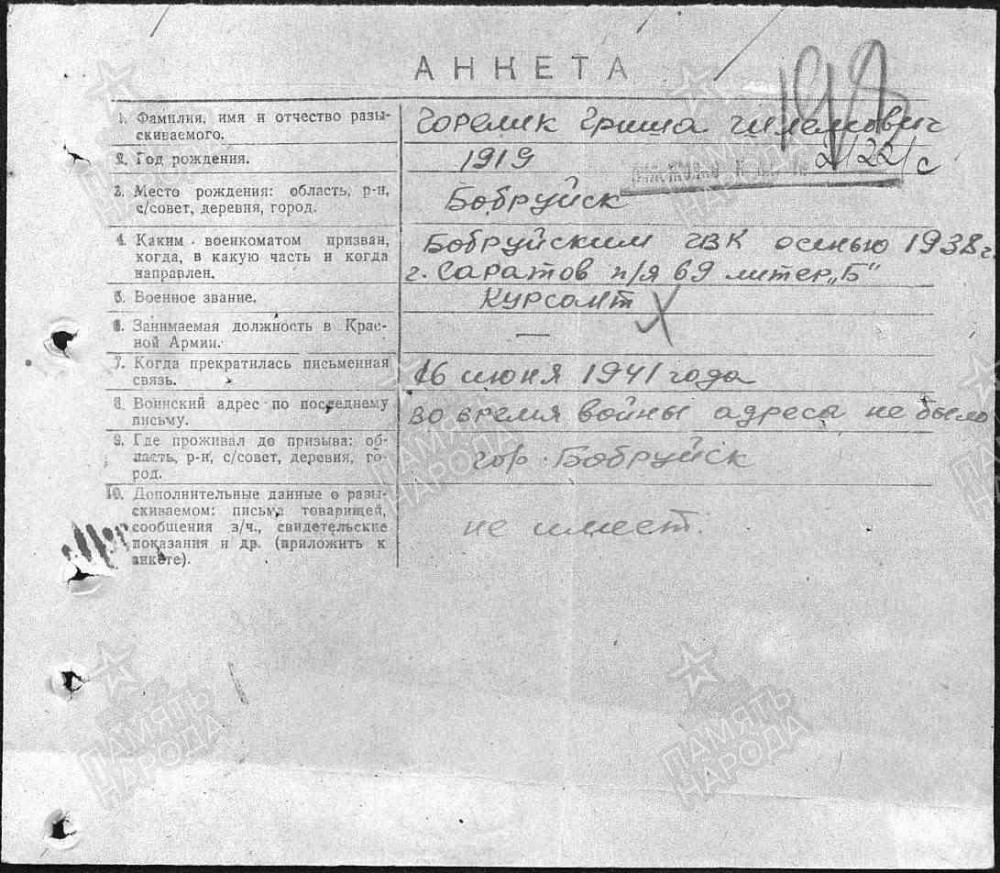 АНКЕТА
1. Фамилия, имя и отчество разы-
скиваемого.
Горелик Гриша
2. Год рождения.
1919
3. Место рождения: область, р-н,
с/совет, деревня, город.
Бобруйск
4. Каким военкоматом призван,
когда, в какую часть и когда
направлен.
Бобруйским ГВК осенью 1938 г.
г. Саратов п/я 69 литер „Б"
5. Военное звание.
Курсант
6. Занимаемая должность в Крас-
ной Армии.
—
7. Когда прекратилась письменная
связь.
16 июня 1941 года
8. Воинский адрес по последнему
письму.
во время войны адреса не было
9. Где проживал до призыва: об-
ласть, р-н, с/совет, деревня, го-
род.
гор. Бобруйск
10. Дополнительные данные о разы-
скиваемом: письма товарищей,
сообщения в/ч., свидетельские
показания и др. (приложить к
анкете).
не имеет.
ПАМЯТЬ
НАРОДА
ПАМЯТЬ
НАРОДА
ПАМЯТЬ
НАРОДА